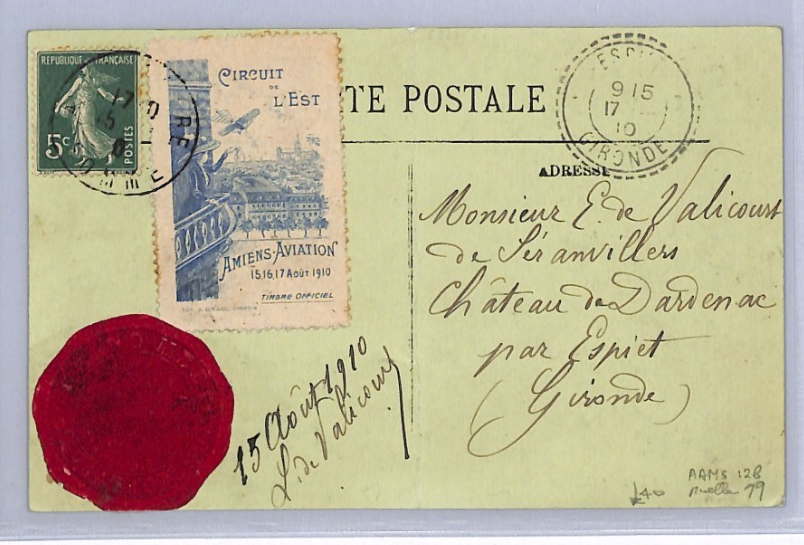 REPUBLIQUE FRANÇAISE
5c
POSTES
17
SOMME
CIRCUIT
DE
L'EST
AMIENS-AVIATION
15,16,17 AOÛT 1910
TIMBRE OFFICIEL
TE POSTALE
9 15
17
10
GIRONDE
ADRESSE
Monsieur E. de Valicourt
de Séranvillers
Château de Dardenac
par Espiet
(Gironde)
15 Août 1910
L. de Valicourt
AAMS 12B
19